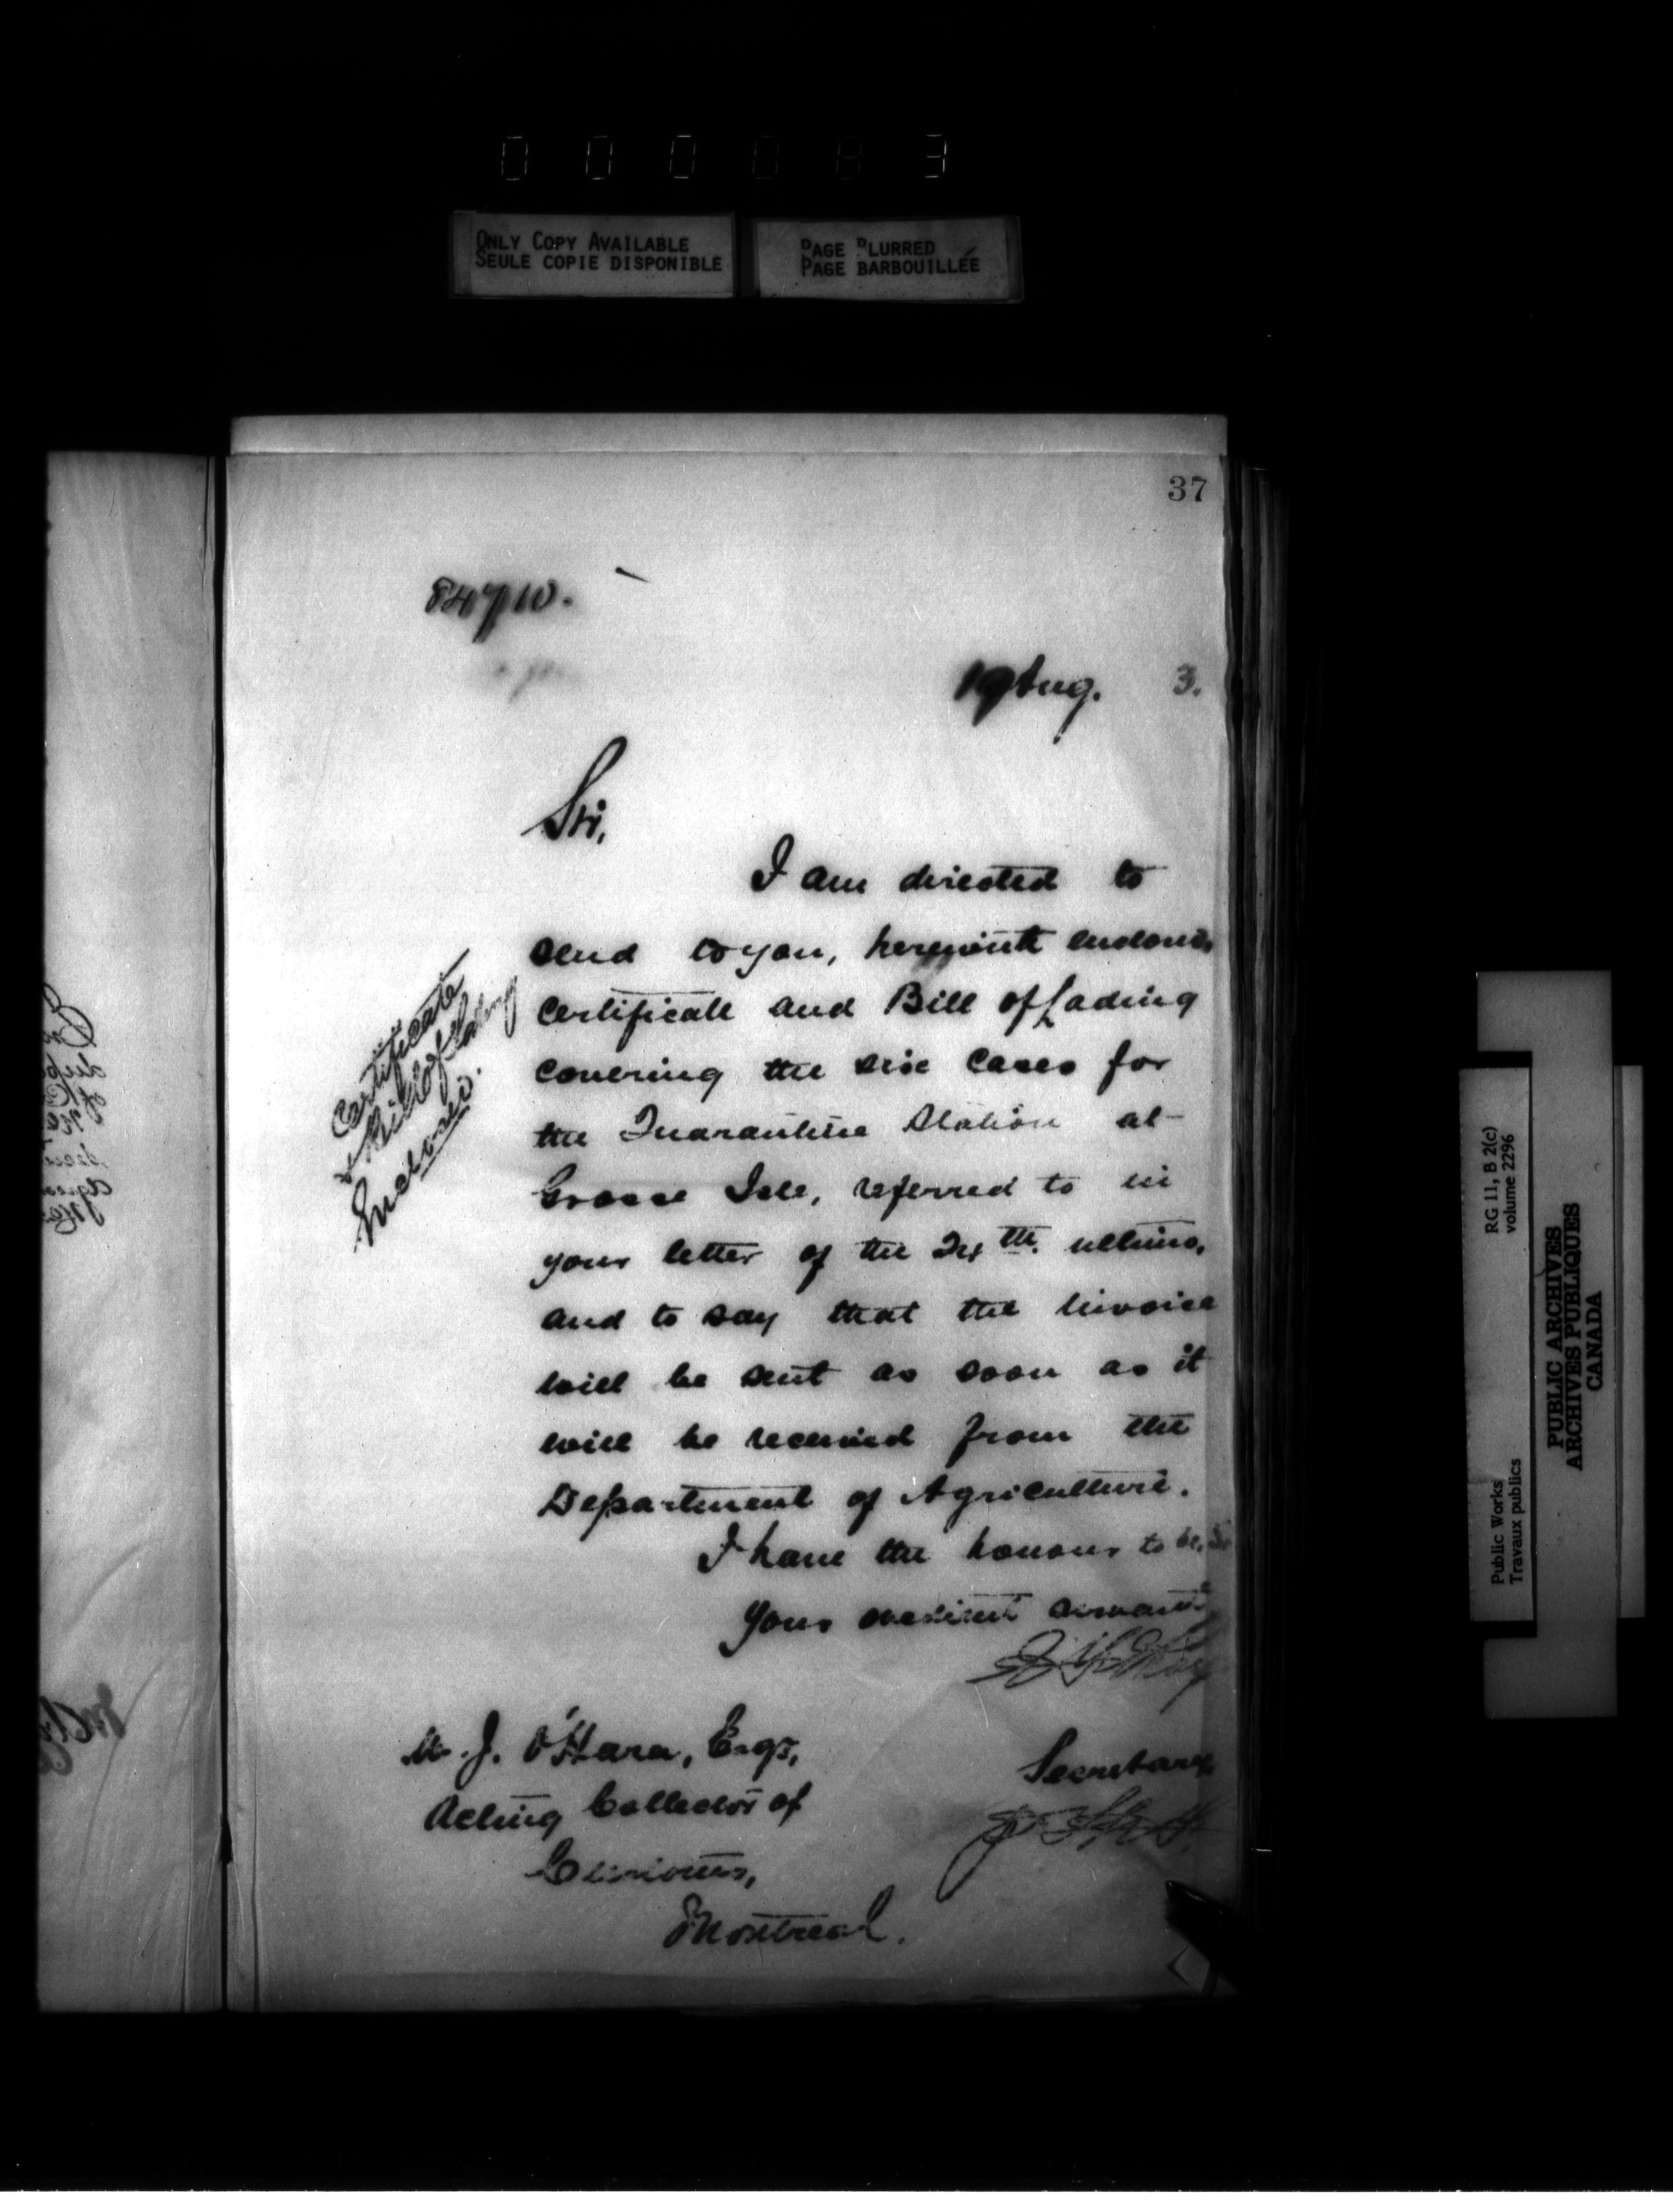 ONLY COPY AVAILABLE
SEULE COPIE DISPONIBLE
PAGE BLURRED
PAGE BARBOUILLÉE
37
84710.
19 Aug. 3.
Sir,
I am directed to
send to you, herewith enclosed,
Certificate and Bill of Lading
covering the six cases for
the Quarantine Station at
Grosse Isle, referred to in
your letter of the 24th. ultimo,
and to say that the Invoice
will be sent as soon as it
will be received from the
Department of Agriculture.
I have the honour to be, Sir
Your obedient servant
Certificate
& Bill of Lading
Enclosed.
Secretary
M. J. O'Hara, Esqr,
Acting Collector of
Customs,
Montreal.
RG 11, B 2(c)
volume 2296
Public Works
Travaux publics
PUBLIC ARCHIVES
ARCHIVES PUBLIQUES
CANADA